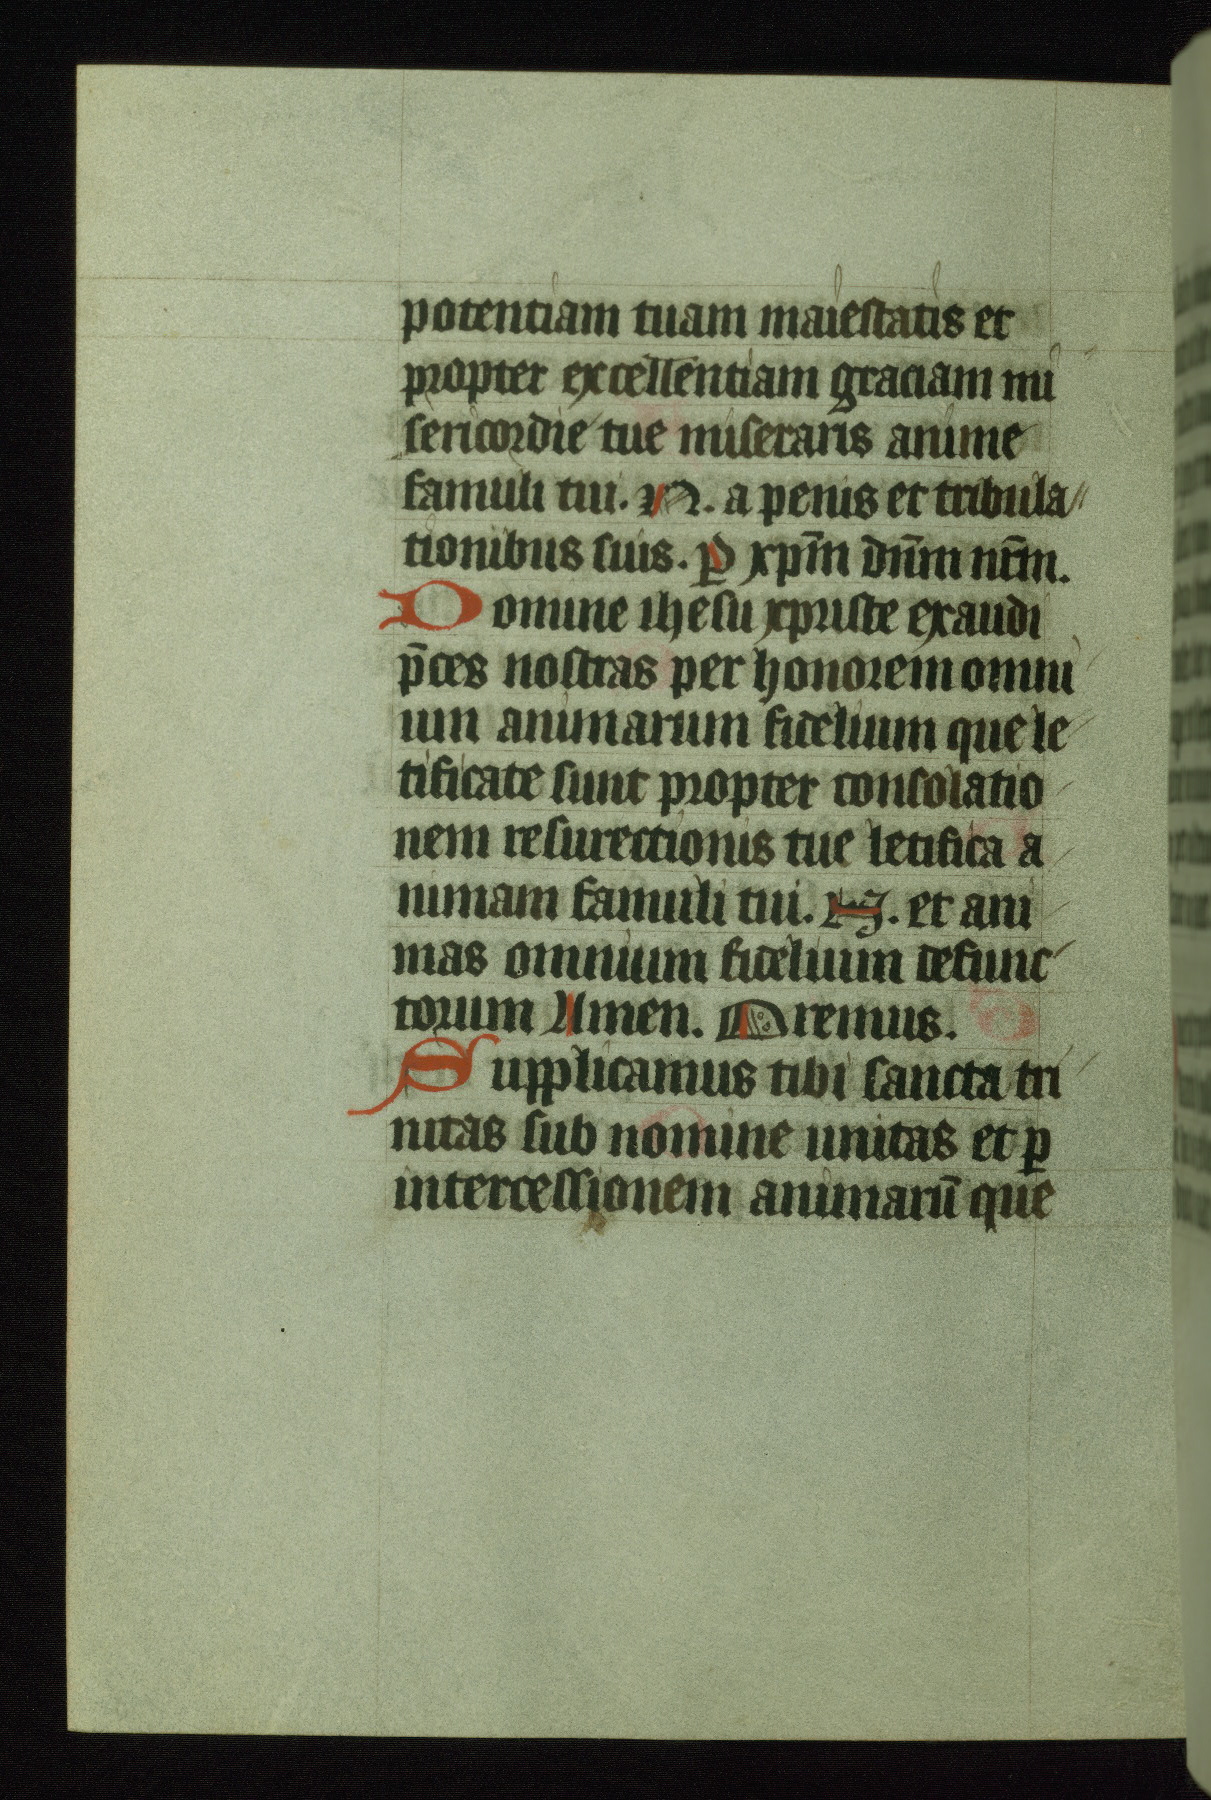 potentiam tuam maiestatis et
propter excellentiam graciam mi
sericordie tue miseraris anime
famuli tui. N. a penis et tribula//
tionibus suis. P xp̄m dn̄m nr̄m.
Domine ihesu xpriste exaudi
p̄ces nostras per honorem omni
um animarum fidelium que le
tificate sunt propter consolatio
nem resurectionis tue letifica a
nimam famuli tui. N. et ani
mas omnium fidelium defunc
torum Amen. Oremus.
Supplicamus tibi sancta tri
nitas sub nomine unitas et ꝑ
intercessionem animarū que